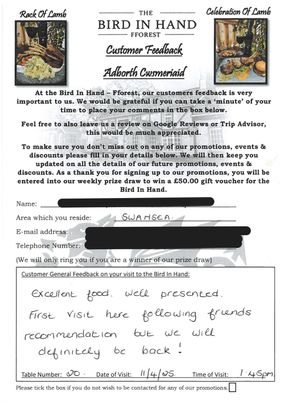 Rack Of Lamb
THE
BIRD IN HAND
FFOREST
Celebration Of Lamb
Customer Feedback
Adborth Cwsmeriaid
At the Bird In Hand - Fforest, our customers feedback is very
important to us. We would be grateful if you can take a 'minute' of your
time to place your comments in the box below.
Feel free to also leave us a review on Google Reviews or Trip Advisor,
this would be much appreciated.
To make sure you don't miss out on any of our promotions, events &
discounts please fill in your details below. We will then keep you
updated on all the details of our future promotions, events &
discounts. As a thank you for signing up to our promotions, you will be
entered into our weekly prize draw to win a £50.00 gift voucher for the
Bird In Hand.
Name:
Area which you reside: SWANSEA
E-mail address:
Telephone Number:
(We will only ring you if you are a winner of our prize draw)
Customer General Feedback on your visit to the Bird In Hand:
Excellent food. well presented.
First visit here following friends
recommendation but we will
definitely be back!
Table Number: 20. Date of Visit: 11/4/25 Time of Visit: 1 45pm.
Please tick the box if you do not wish to be contacted for any of our promotions